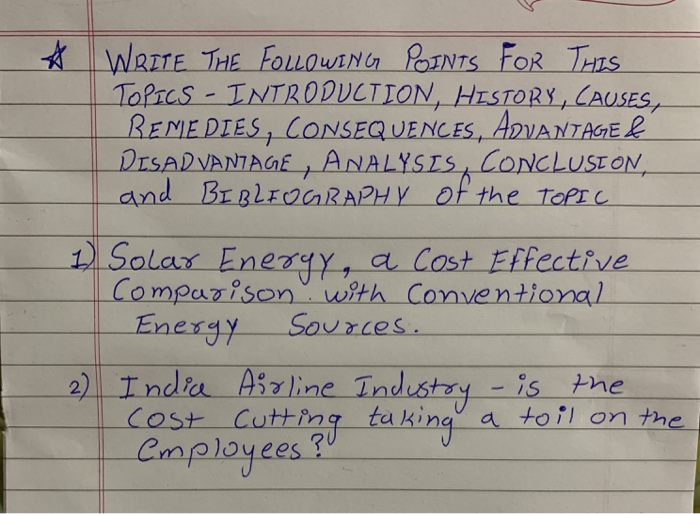 ☆ WRITE THE FOLLOWING POINTS FOR THIS
TOPICS - INTRODUCTION, HISTORY, CAUSES,
REMEDIES, CONSEQUENCES, ADVANTAGE &
DISADVANTAGE, ANALYSIS, CONCLUSION,
and BIBLIOGRAPHY OF the TOPIC
1) Solar Energy, a Cost Effective
Comparison with Conventional
Energy Sources.
2) India Airline Industry - is the
Cost Cutting taking a toil on the
employees?